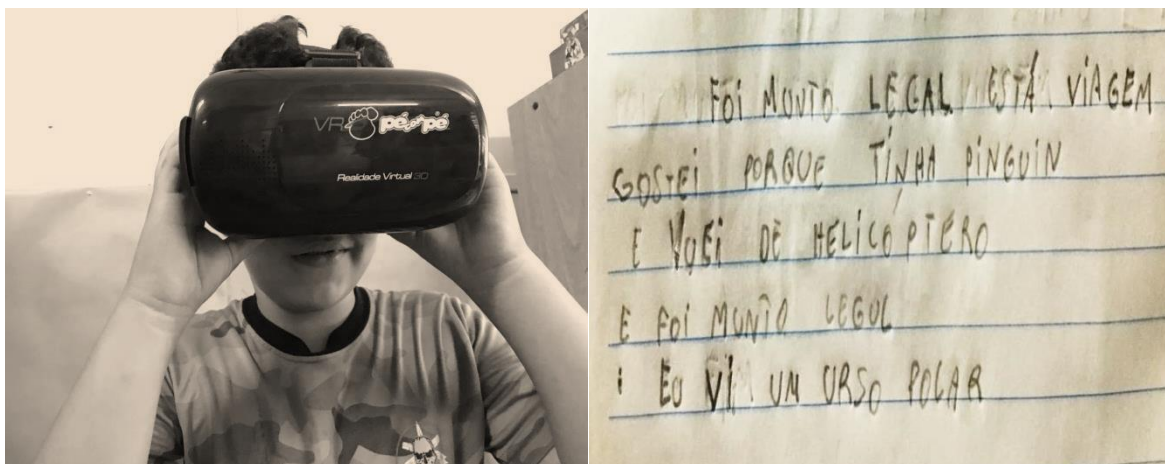 VR pé com pé
Realidade Virtual 3D
FOI MUNTO LEGAL ESTÁ VIAGEM
GOSTEI PORQUE TINHA PINGUIN
E VOEI DE HELICÓPTERO
E FOI MUNTO LEGOL
I EU VI UM URSO POLAR